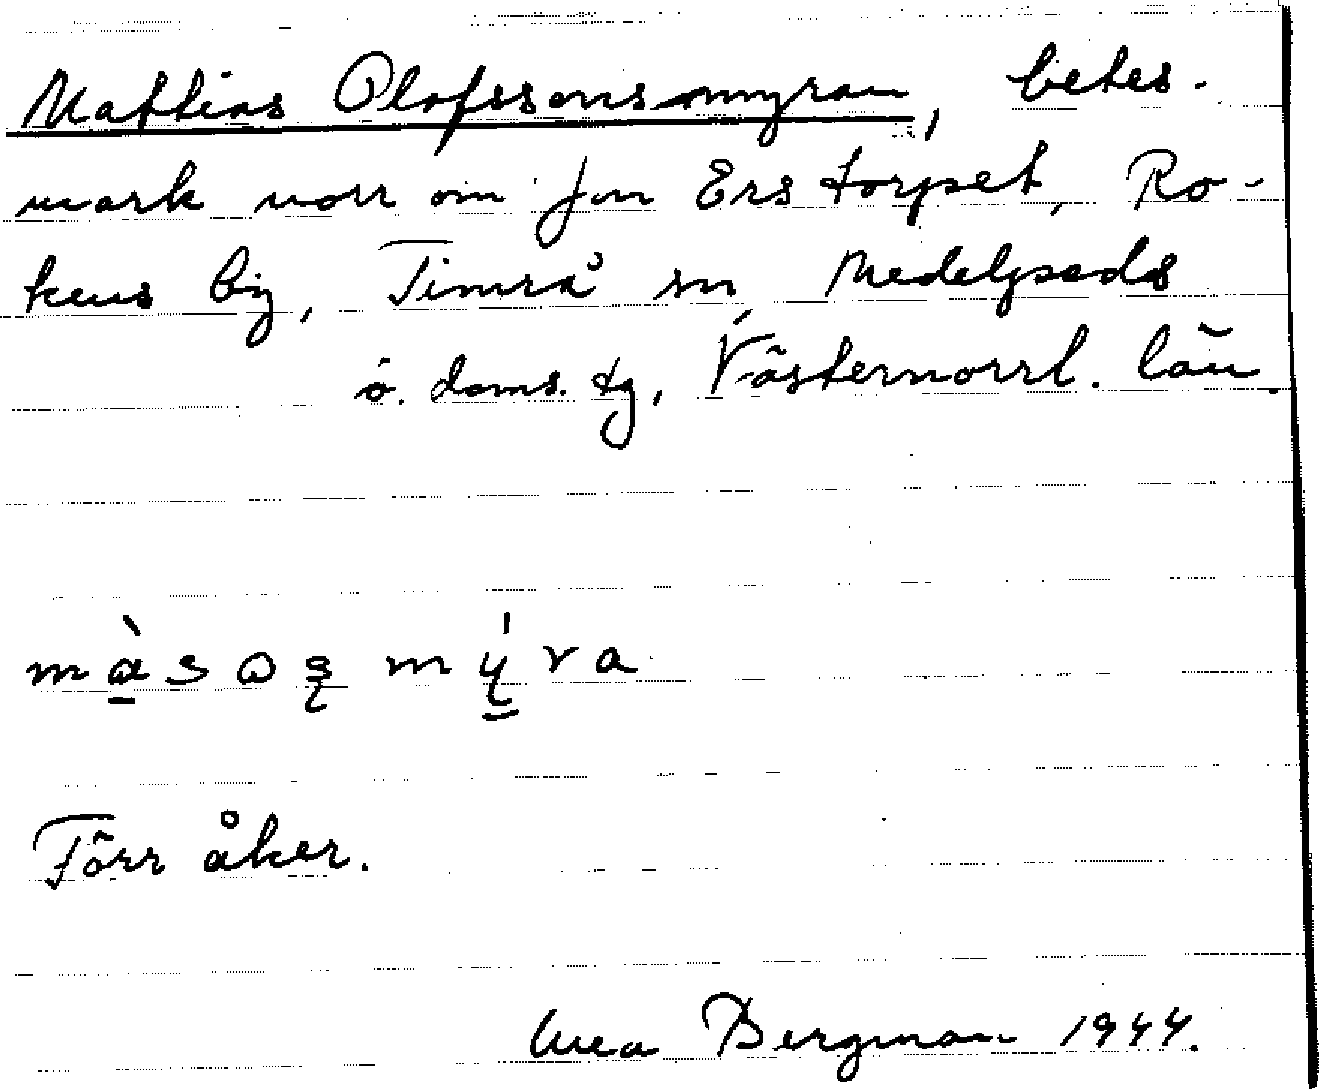 Mattias Olofssonsmyran, betes-
mark norr om Jon Ers torpet, Ro-
kens by, Timrå sn, Medelpads
ö. doms. tg, Västernorrl. län.
Förr åker.
Bergman 1944.